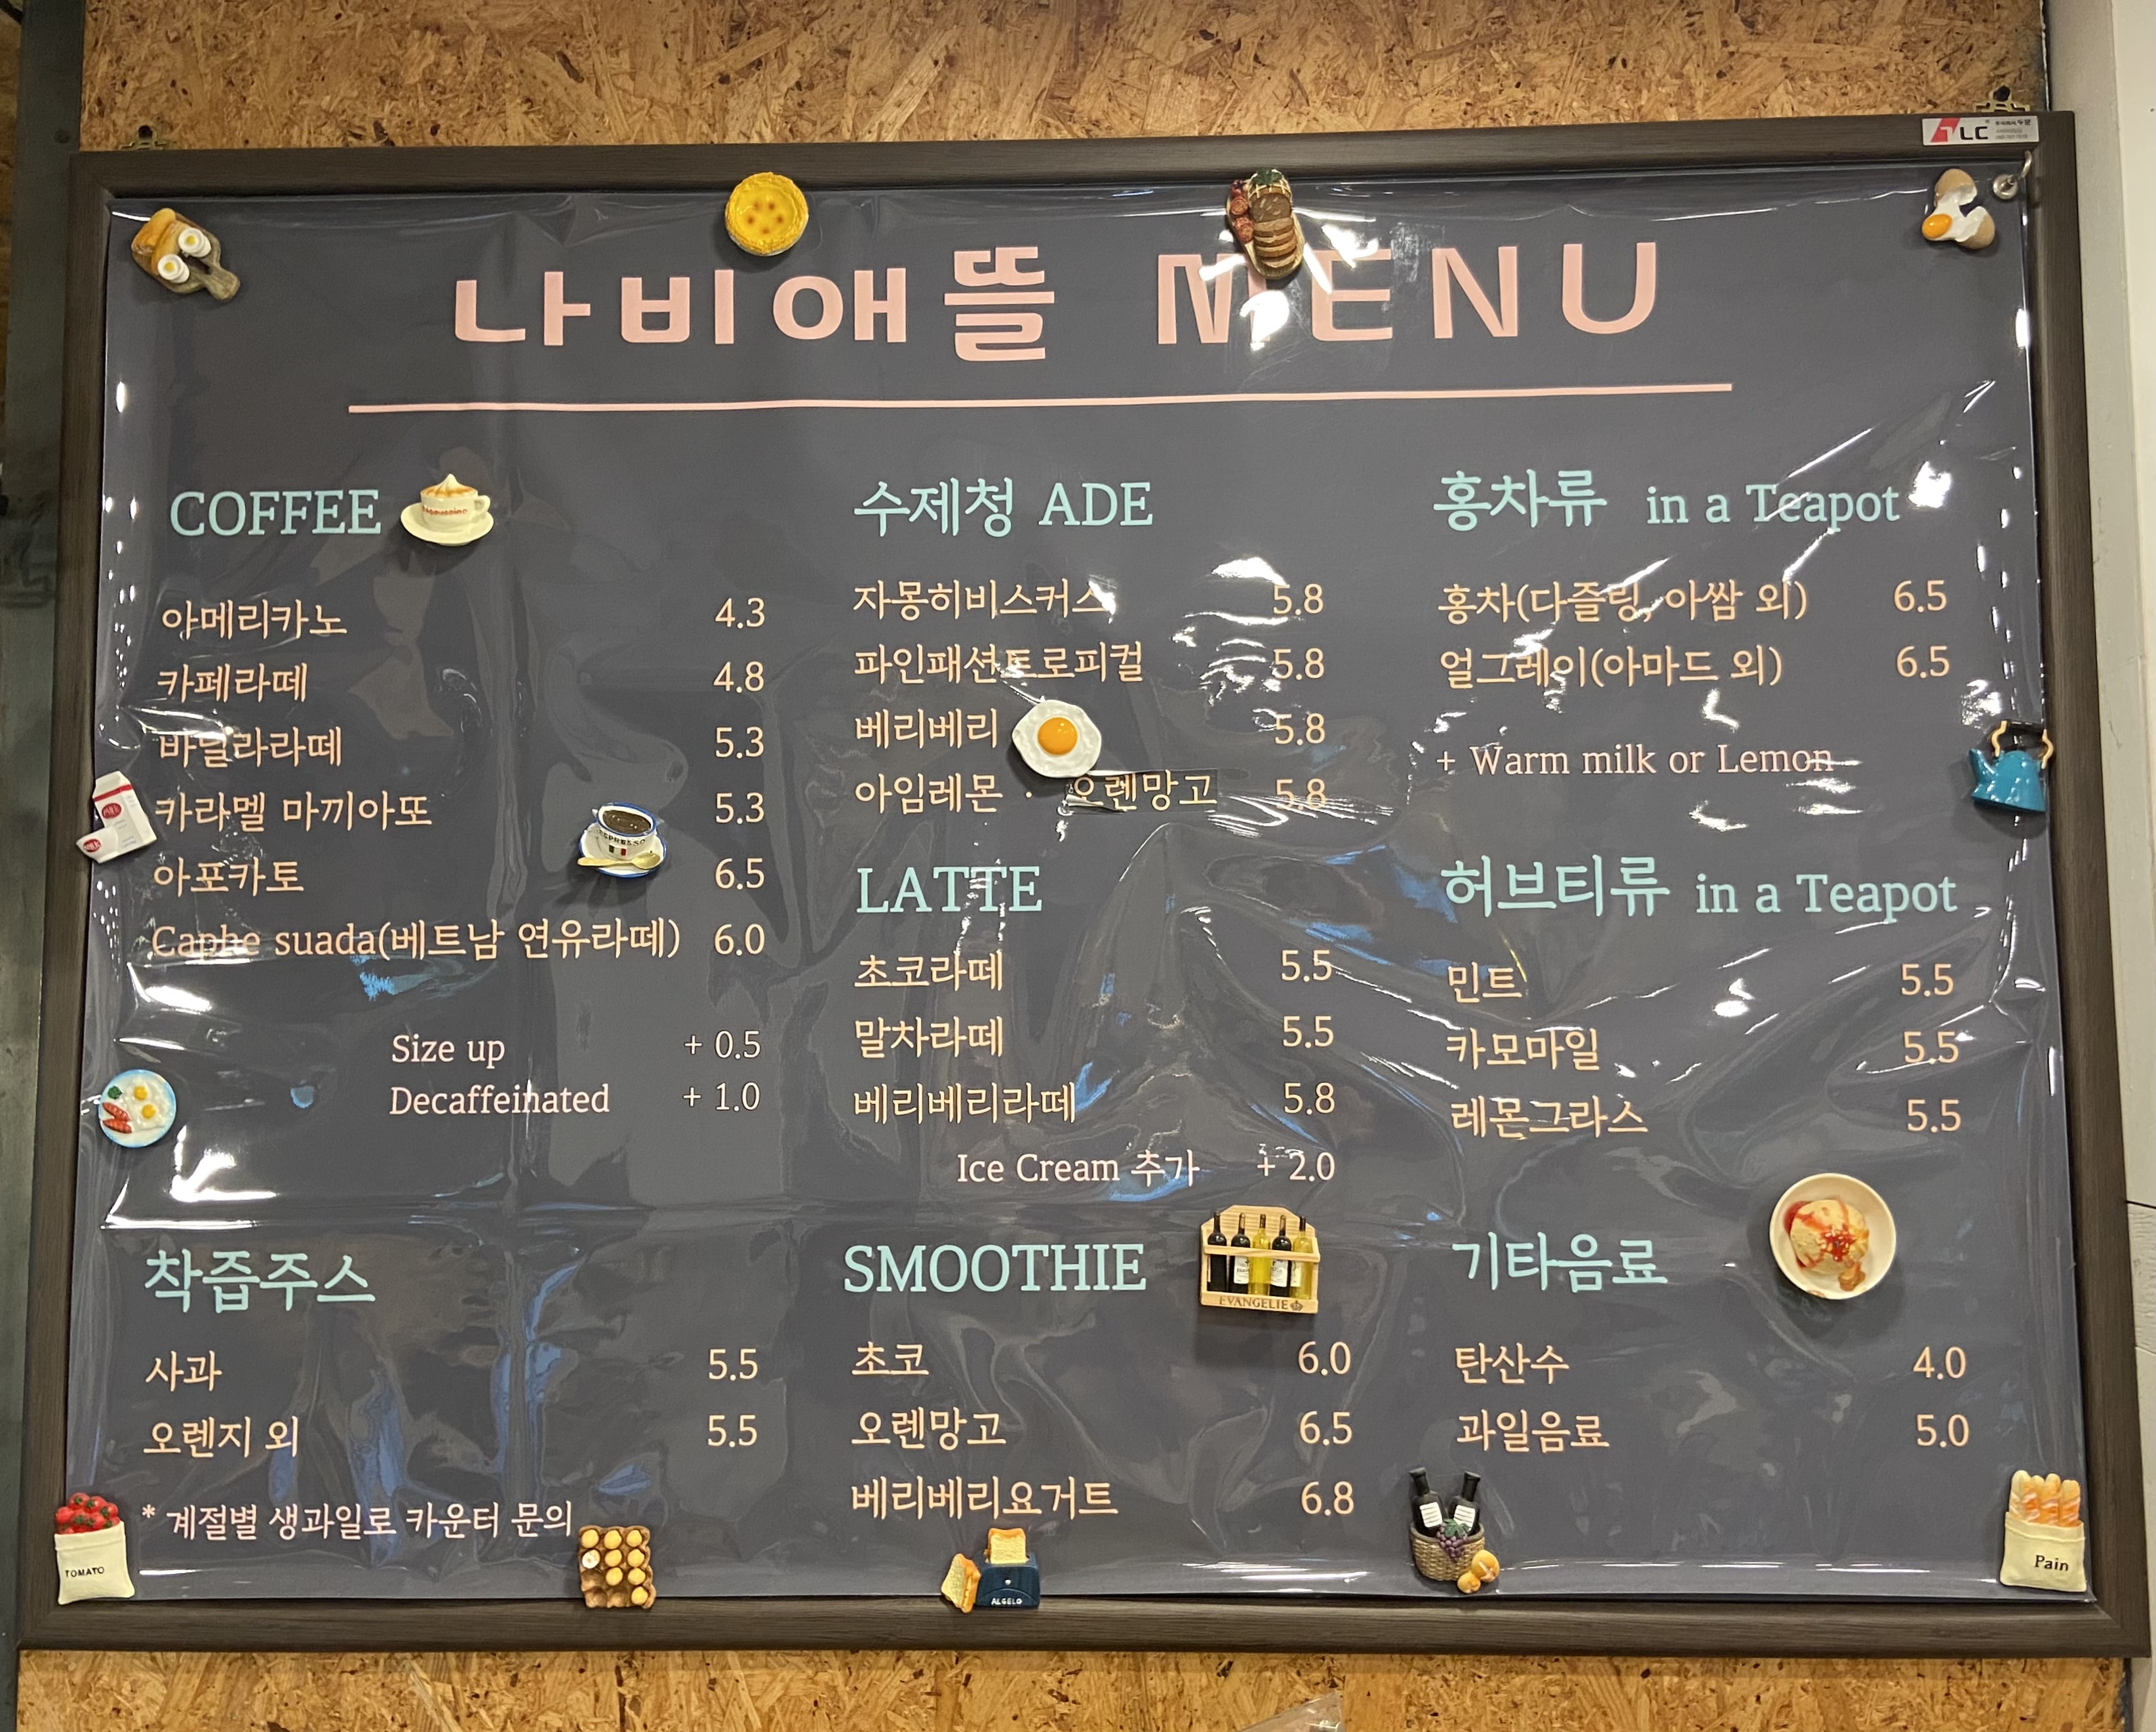 나비애뜰 MENU
COFFEE
아메리카노 4.3
카페라떼 4.8
바닐라라떼 5.3
카라멜 마끼아또 5.3
아포카토 6.5
Caphe suada(베트남 연유라떼) 6.0
Size up + 0.5
Decaffeinated + 1.0
착즙주스
사과 5.5
오렌지 외 5.5
* 계절별 생과일로 카운터 문의
수제청 ADE
자몽히비스커스 5.8
파인패션트로피컬 5.8
베리베리 5.8
아임레몬 · 오렌망고 5.8
LATTE
초코라떼 5.5
말차라떼 5.5
베리베리라떼 5.8
Ice Cream 추가 + 2.0
SMOOTHIE
초코 6.0
오렌망고 6.5
베리베리요거트 6.8
홍차류 in a Teapot
홍차(다즐링, 아쌈 외) 6.5
얼그레이(아마드 외) 6.5
+ Warm milk or Lemon
허브티류 in a Teapot
민트 5.5
카모마일 5.5
레몬그라스 5.5
기타음료
탄산수 4.0
과일음료 5.0
ESPRESSO
EVANGELIE
TOMATO
ALGELO
Pain